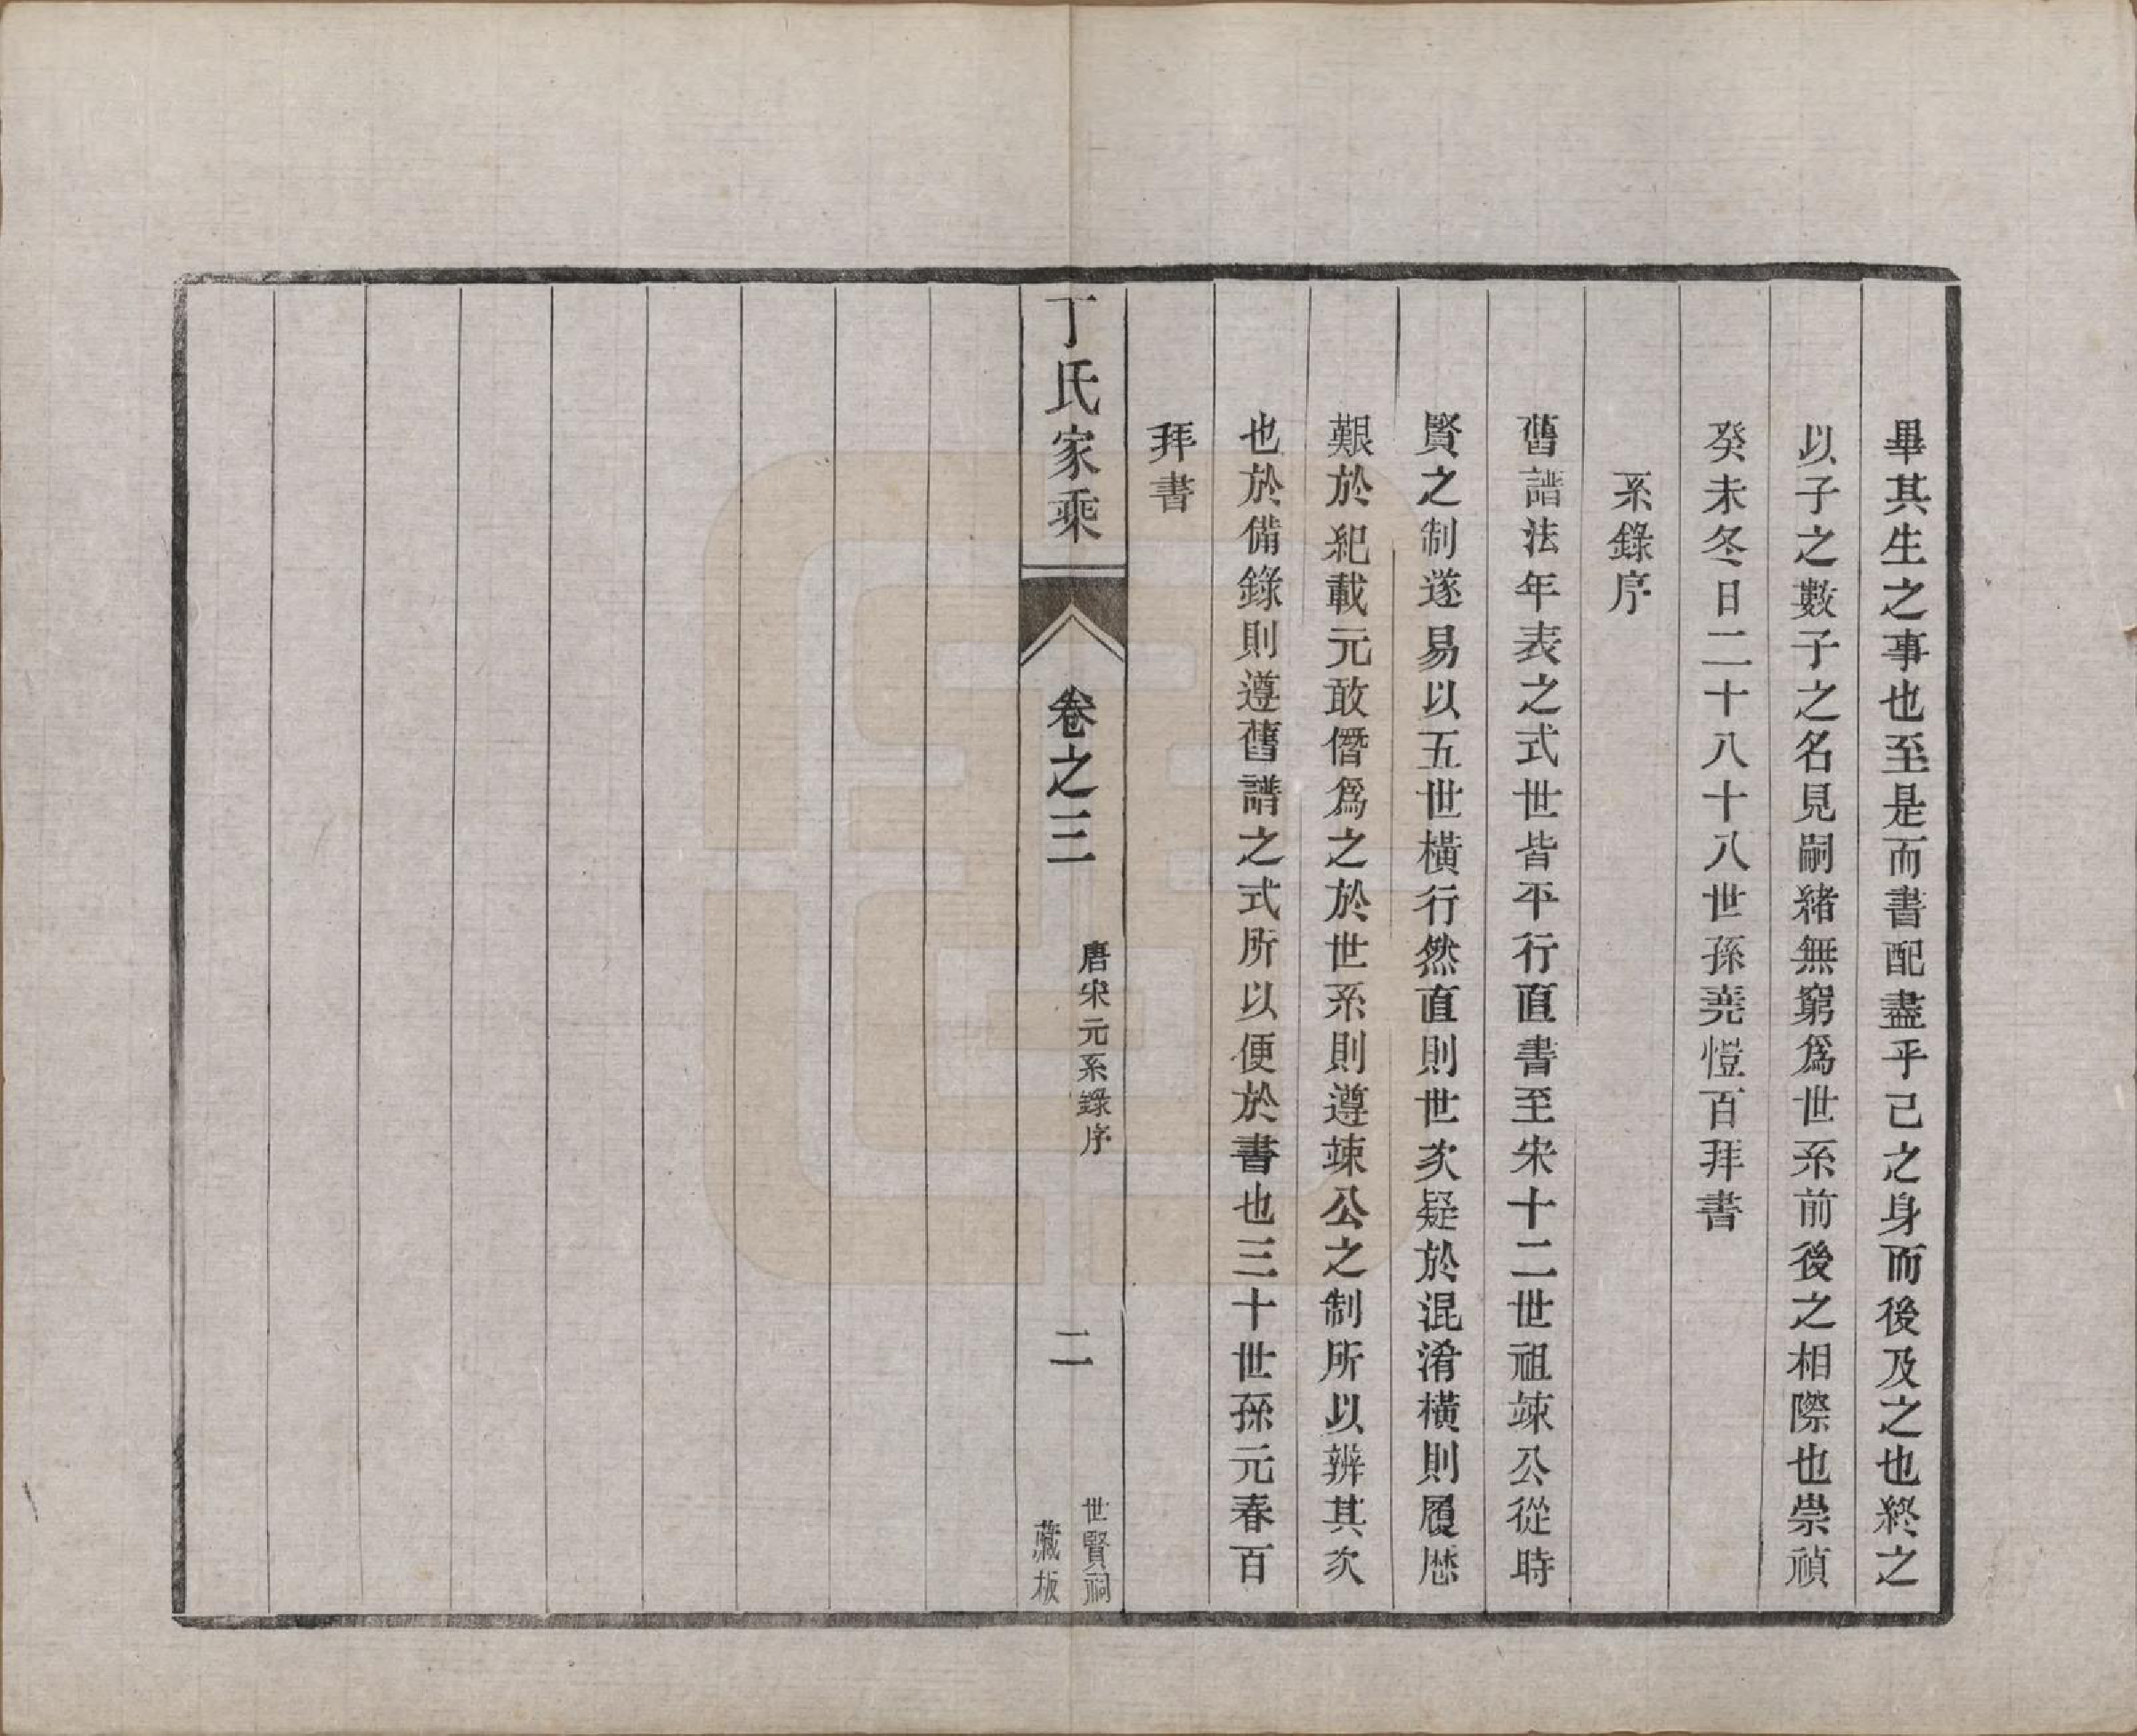 畢其生之事也至是而書配盡乎己之身而後及之也終之
以子之數子之名見嗣緒無窮爲世系前後之相際也崇禎
癸未冬日二十八十八世孫堯愷百拜書
系錄序
舊譜法年表之式世皆平行直書至宋十二世祖竦公從時
賢之制遂易以五世橫行然直則世次疑於混淆橫則履歷
艱於紀載元敢僭爲之於世系則遵竦公之制所以辨其次
也於備錄則遵舊譜之式所以便於書也三十世孫元春百
拜書
丁氏家乘
卷之三
唐宋元系錄序
二
世賢祠
藏板